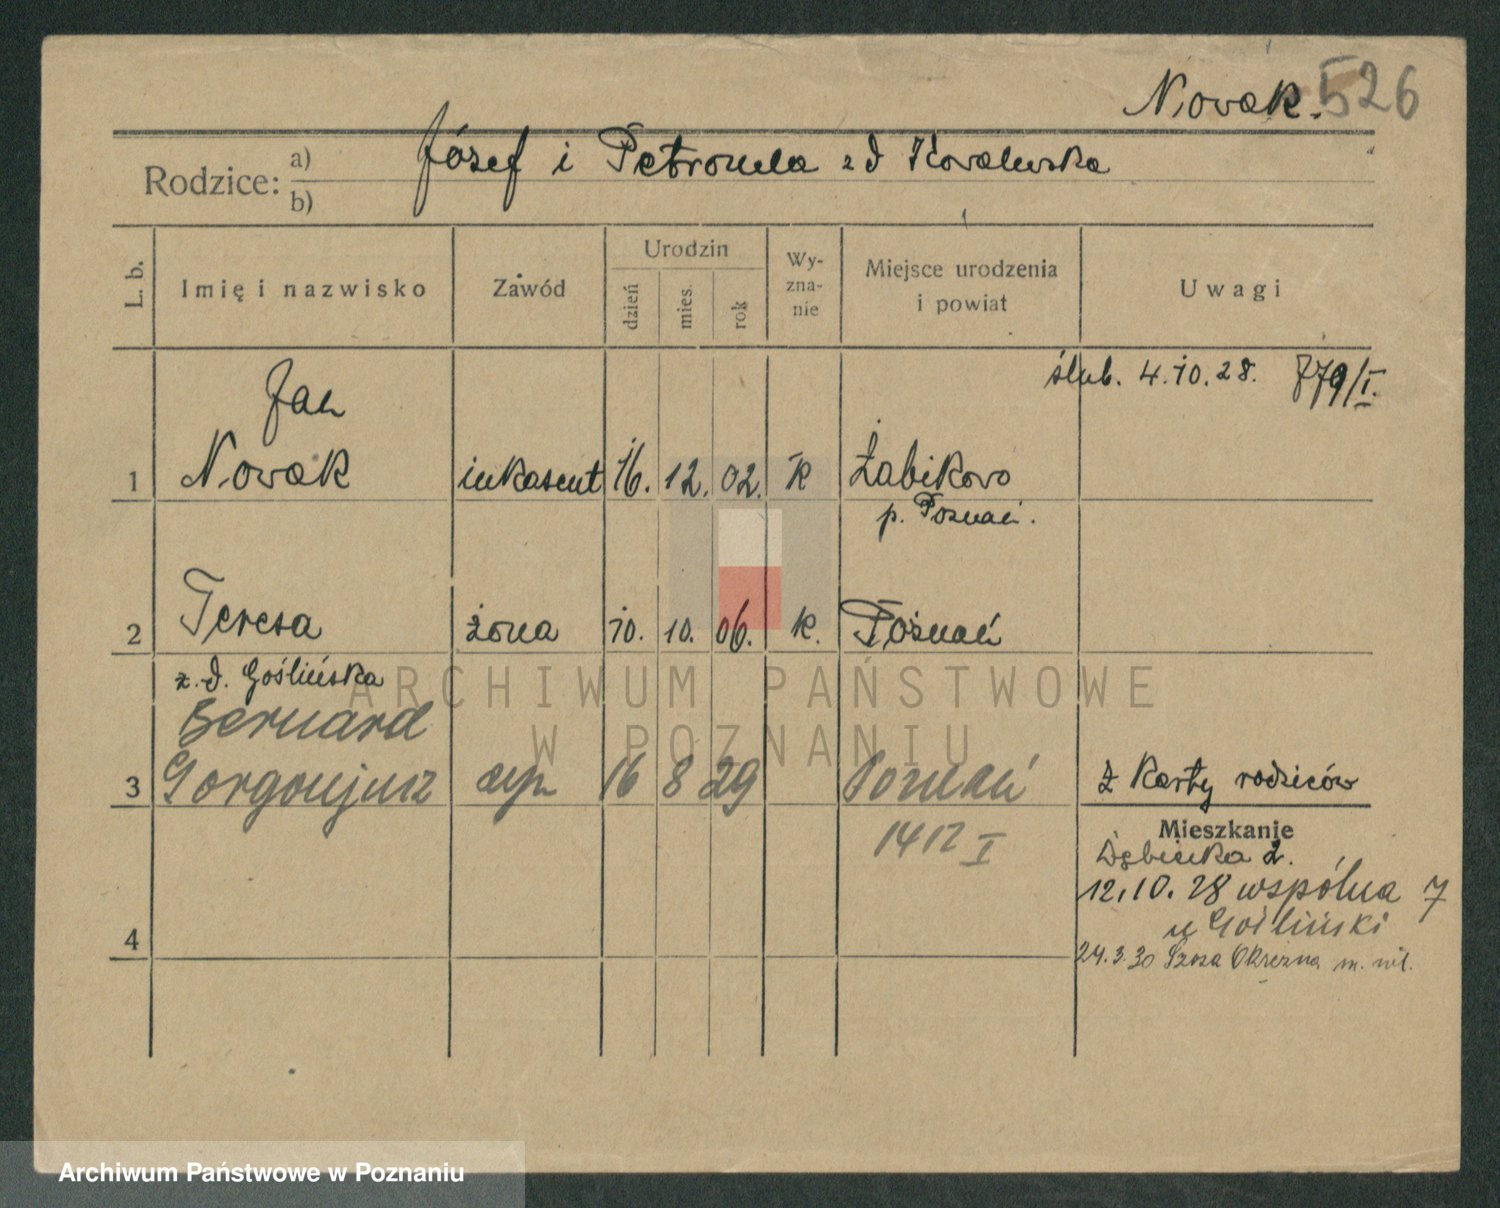 Nowak. 526
Rodzice: a) Józef i Petronela z d Kowalewska
b)
L. b. Imię i nazwisko Zawód Urodzin dzień mies. rok Wy-zna-nie Miejsce urodzenia i powiat Uwagi
ślub. 4.10.28. 879/I.
Jan
1 Nowak inkasent 16. 12. 02. k Żabikowo
p. Poznań.
2 Teresa żona 10. 10. 06. k. Poznań
z.d. Goślińska
Bernard
3 Gorgonjusz syn 16 8 29 Poznań z karty rodziców
1412 I
Mieszkanie
Dębińska 2.
12.10.28 wspólna 7
u Gośliński
4
24.3.30 Szosa Okrężna m. wł.
ARCHIWUM PAŃSTWOWE
W POZNANIU
Archiwum Państwowe w Poznaniu